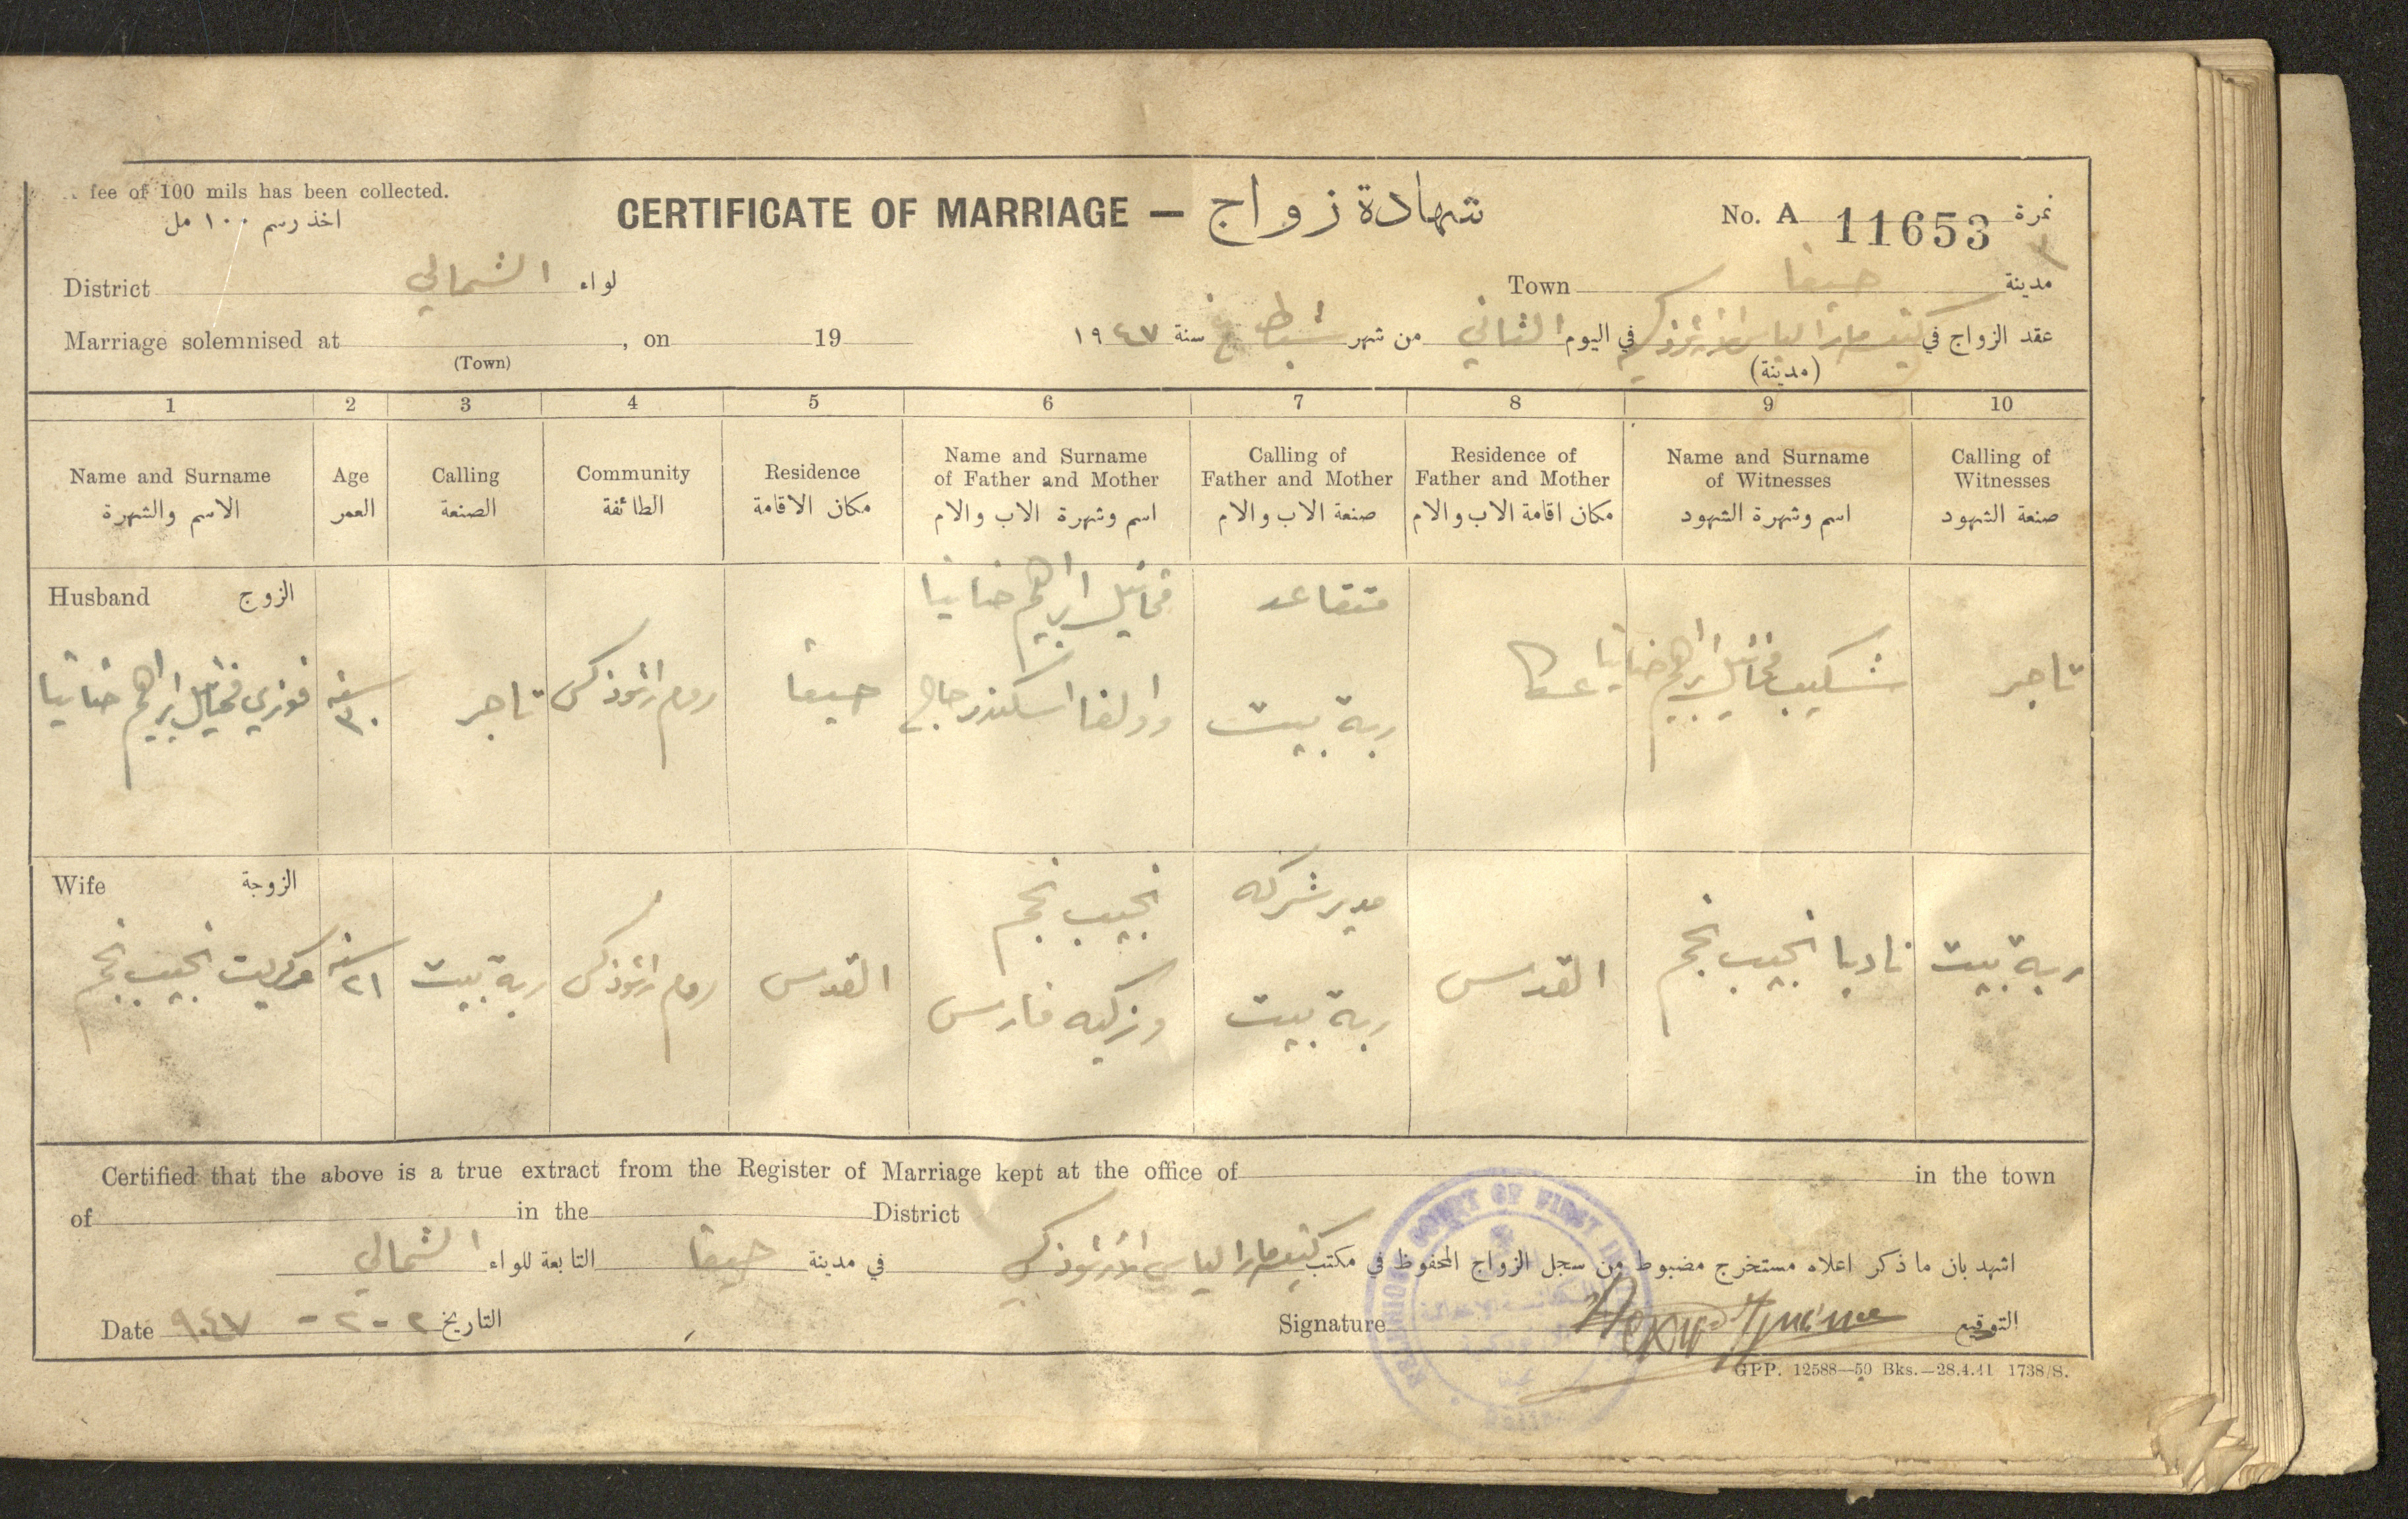 fee of 100 mils has been collected.
اخذ رسم ١٠٠ مل
CERTIFICATE OF MARRIAGE — شهادة زواج
No. A 11653 نمرة
٣
District الشمالي لواء
Town حيفا مدينة
Marriage solemnised at , on 19
(Town)
عقد الزواج في كنيسة مار الياس الارثوذكسية في اليوم الثاني من شهر شباط سنة ١٩٤٧
(مدينة)
1 2 3 4 5 6 7 8 9 10
Name and Surname
الاسم والشهرة
Age
العمر
Calling
الصنعة
Community
الطائفة
Residence
مكان الاقامة
Name and Surname
of Father and Mother
اسم وشهرة الاب والام
Calling of
Father and Mother
صنعة الاب والام
Residence of
Father and Mother
مكان اقامة الاب والام
Name and Surname
of Witnesses
اسم وشهرة الشهود
Calling of
Witnesses
صنعة الشهود
Husband الزوج
فوزي مخائيل ابراهيم حنانيا
سنة
٣٠
تاجر
روم ارثوذكس
حيفا
مخائيل ابراهيم حنانيا
واولغا اسكندر حاج
متقاعد
ربة بيت
عكا
شكيب مخائيل ابراهيم حنانيا
تاجر
Wife الزوجة
مركريت نجيب نجم
سنة
٢١
ربة بيت
روم ارثوذكس
القدس
نجيب نجم
وزكيه فارس
مدير شركه
ربة بيت
القدس
ناديا نجيب نجم
ربة بيت
Certified that the above is a true extract from the Register of Marriage kept at the office of in the town
of in the District
اشهد بان ما ذكر اعلاه مستخرج مضبوط من سجل الزواج المحفوظ في مكتب كنيسة مار الياس الارثوذكسية في مدينة حيفا التابعة للواء الشمالي
Date ٢ - ٢ - ٩٤٧ التاريخ
Signature التوقيع
RELIGIOUS COURT OF FIRST
GPP. 12588—50 Bks.—28.4.41 1738/S.